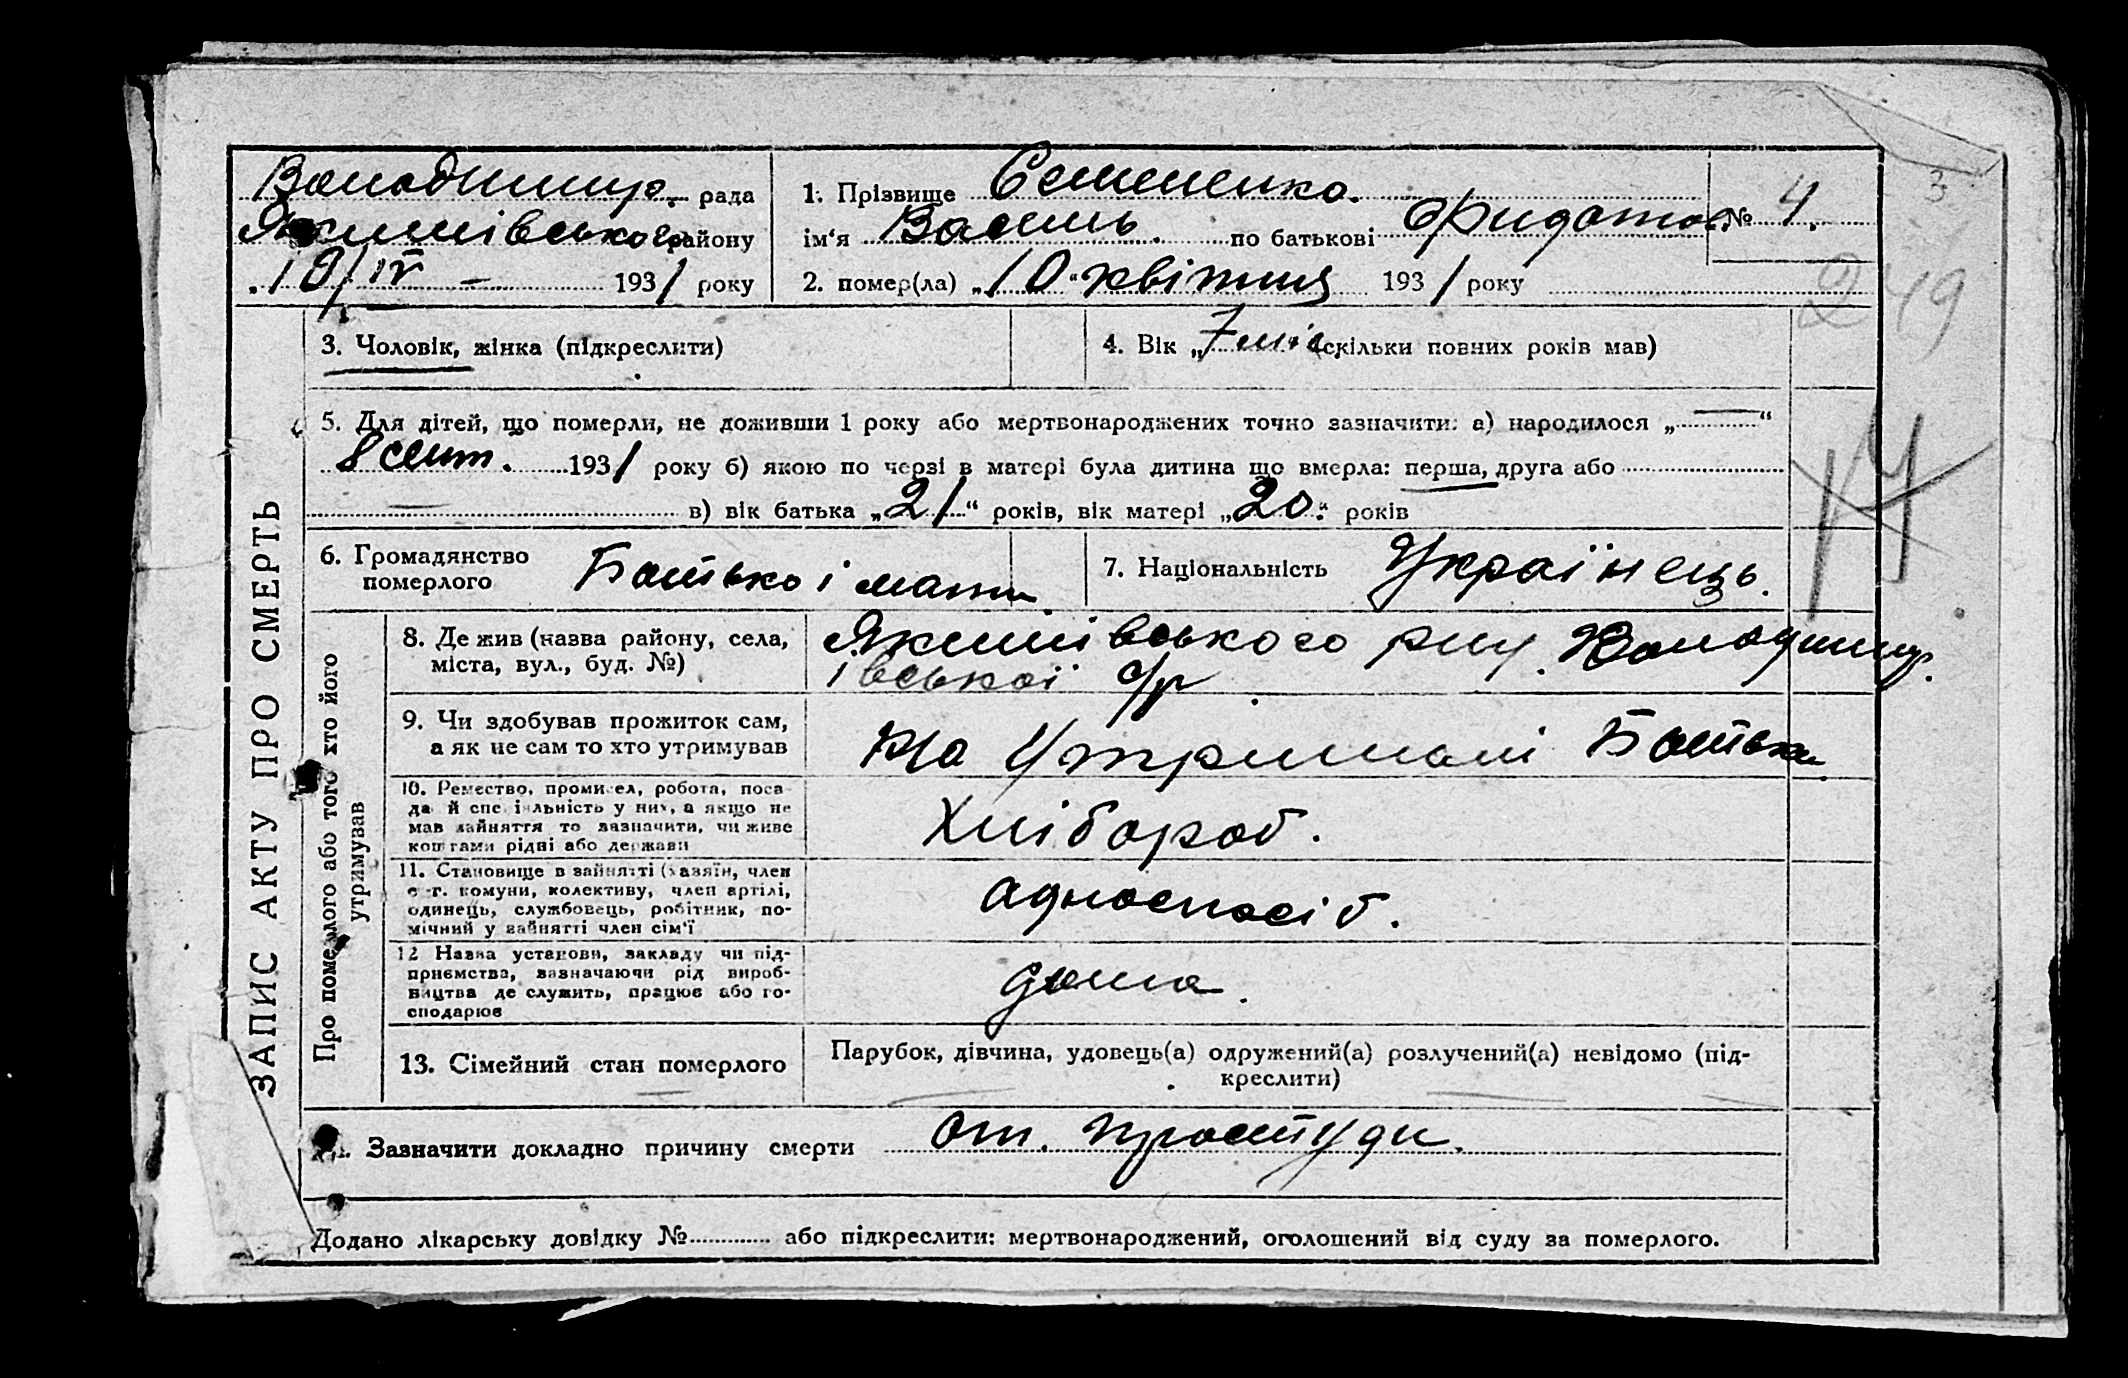 Володимир. рада
Якимівського району
10/IV – 1931 року
1. Прізвище Семененко.
ім'я Василь. по батькові Фидотов. № 4.
2. помер(ла) „10" квітня 1931 року
3
249
3. Чоловік, жінка (підкреслити)
4. Вік „7 міс. (скільки повних років мав)
5. Для дітей, що померли, не доживши 1 року або мертвонароджених точно зазначити: а) народилося „—"
8 сент. 1931 року б) якою по черзі в матері була дитина що вмерла: перша, друга або
в) вік батька „21" років, вік матері „20" років
14
6. Громадянство померлого Батько і мати
7. Національність Українець.
ЗАПИС АКТУ ПРО СМЕРТЬ
Про померлого або того хто його утримував
8. Де жив (назва району, села, Якимівського р-ну. Володимир.
міста, вул., буд. №) івської с/р
9. Чи здобував прожиток сам,
а як не сам то хто утримував На утримані Батька
10. Ремество, промисел, робота, поса-
да й спеціяльність у них, а якщо не
мав зайняття то зазначити, чи живе
коштами рідні або держави Хлібороб.
11. Становище в зайнятті (хазяїн, член
с.-г. комуни, колективу, член артілі,
одинець, службовець, робітник, по-
мічний у зайнятті член сім'ї одноосіб.
12 Назва установи, закладу чи під-
приємства, зазначаючи рід вироб-
ництва де служить, працює або го-
сподарює дома.
13. Сімейний стан померлого Парубок, дівчина, удовець(а) одружений(а) розлучений(а) невідомо (під-
креслити)
Зазначити докладно причину смерти От. простуди.
Додано лікарську довідку № або підкреслити: мертвонароджений, оголошений від суду за померлого.